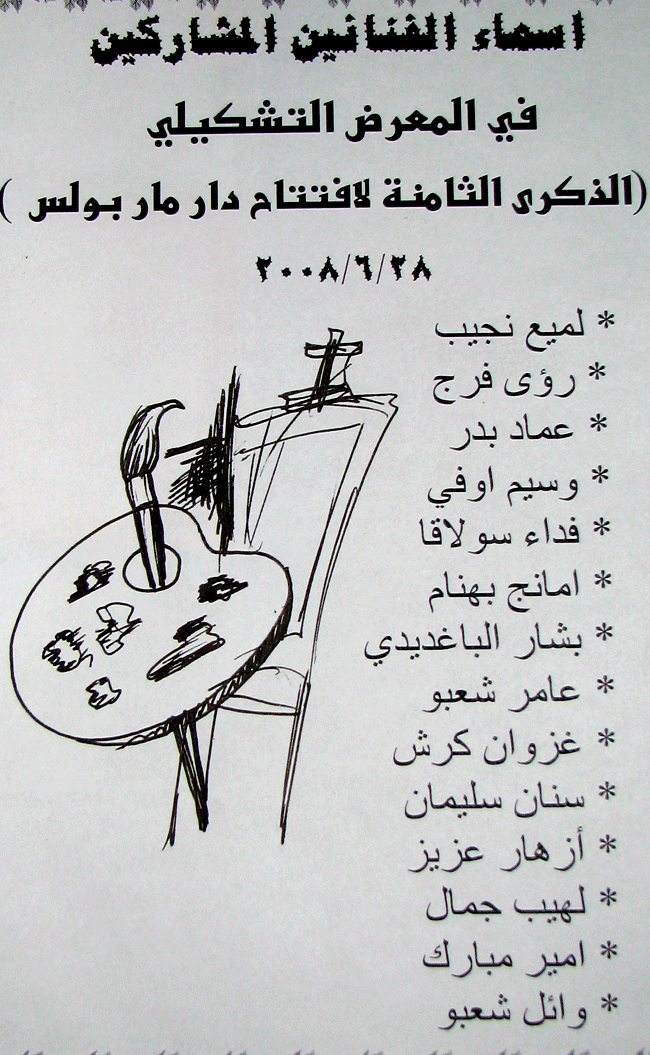 اسماء الفنانين المشاركين
في المعرض التشكيلي
(الذكرى الثامنة لافتتاح دار مار بولس )
٢٠٠٨/٦/٢٨
* لميع نجيب
* رؤى فرج
* عماد بدر
* وسيم اوفي
* فداء سولاقا
* امانج بهنام
* بشار الباغديدي
* عامر شعبو
* غزوان كرش
* سنان سليمان
* أزهار عزيز
* لهيب جمال
* امير مبارك
* وائل شعبو